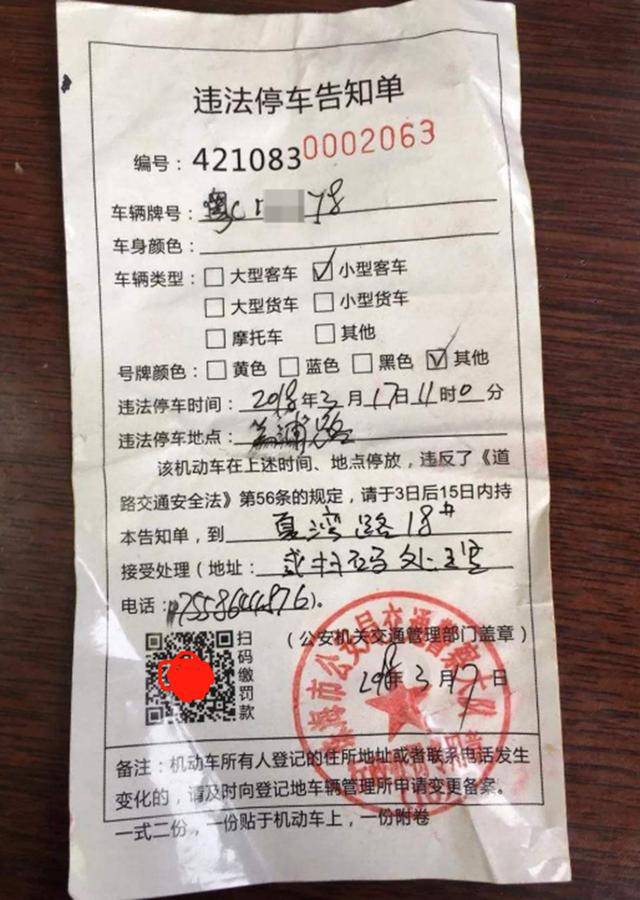 违法停车告知单
编号：4210830002063
车辆牌号：粤C Y8
车身颜色：
车辆类型：□大型客车 ☑小型客车
□大型货车 □小型货车
□摩托车 □其他
号牌颜色：□黄色 □蓝色 □黑色 ☑其他
违法停车时间：2018年3月17日11时0分
违法停车地点：
该机动车在上述时间、地点停放，违反了《道
路交通安全法》第56条的规定，请于3日后15日内持
本告知单，到夏湾路18#
接受处理（地址：或扫码处理
电话：）。
扫码缴罚款
（公安机关交通管理部门盖章）
2018年3月17日
珠海市公安局交通警察支队
备注：机动车所有人登记的住所地址或者联系电话发生
变化的，请及时向登记地车辆管理所申请变更备案。
一式二份，一份贴于机动车上，一份附卷